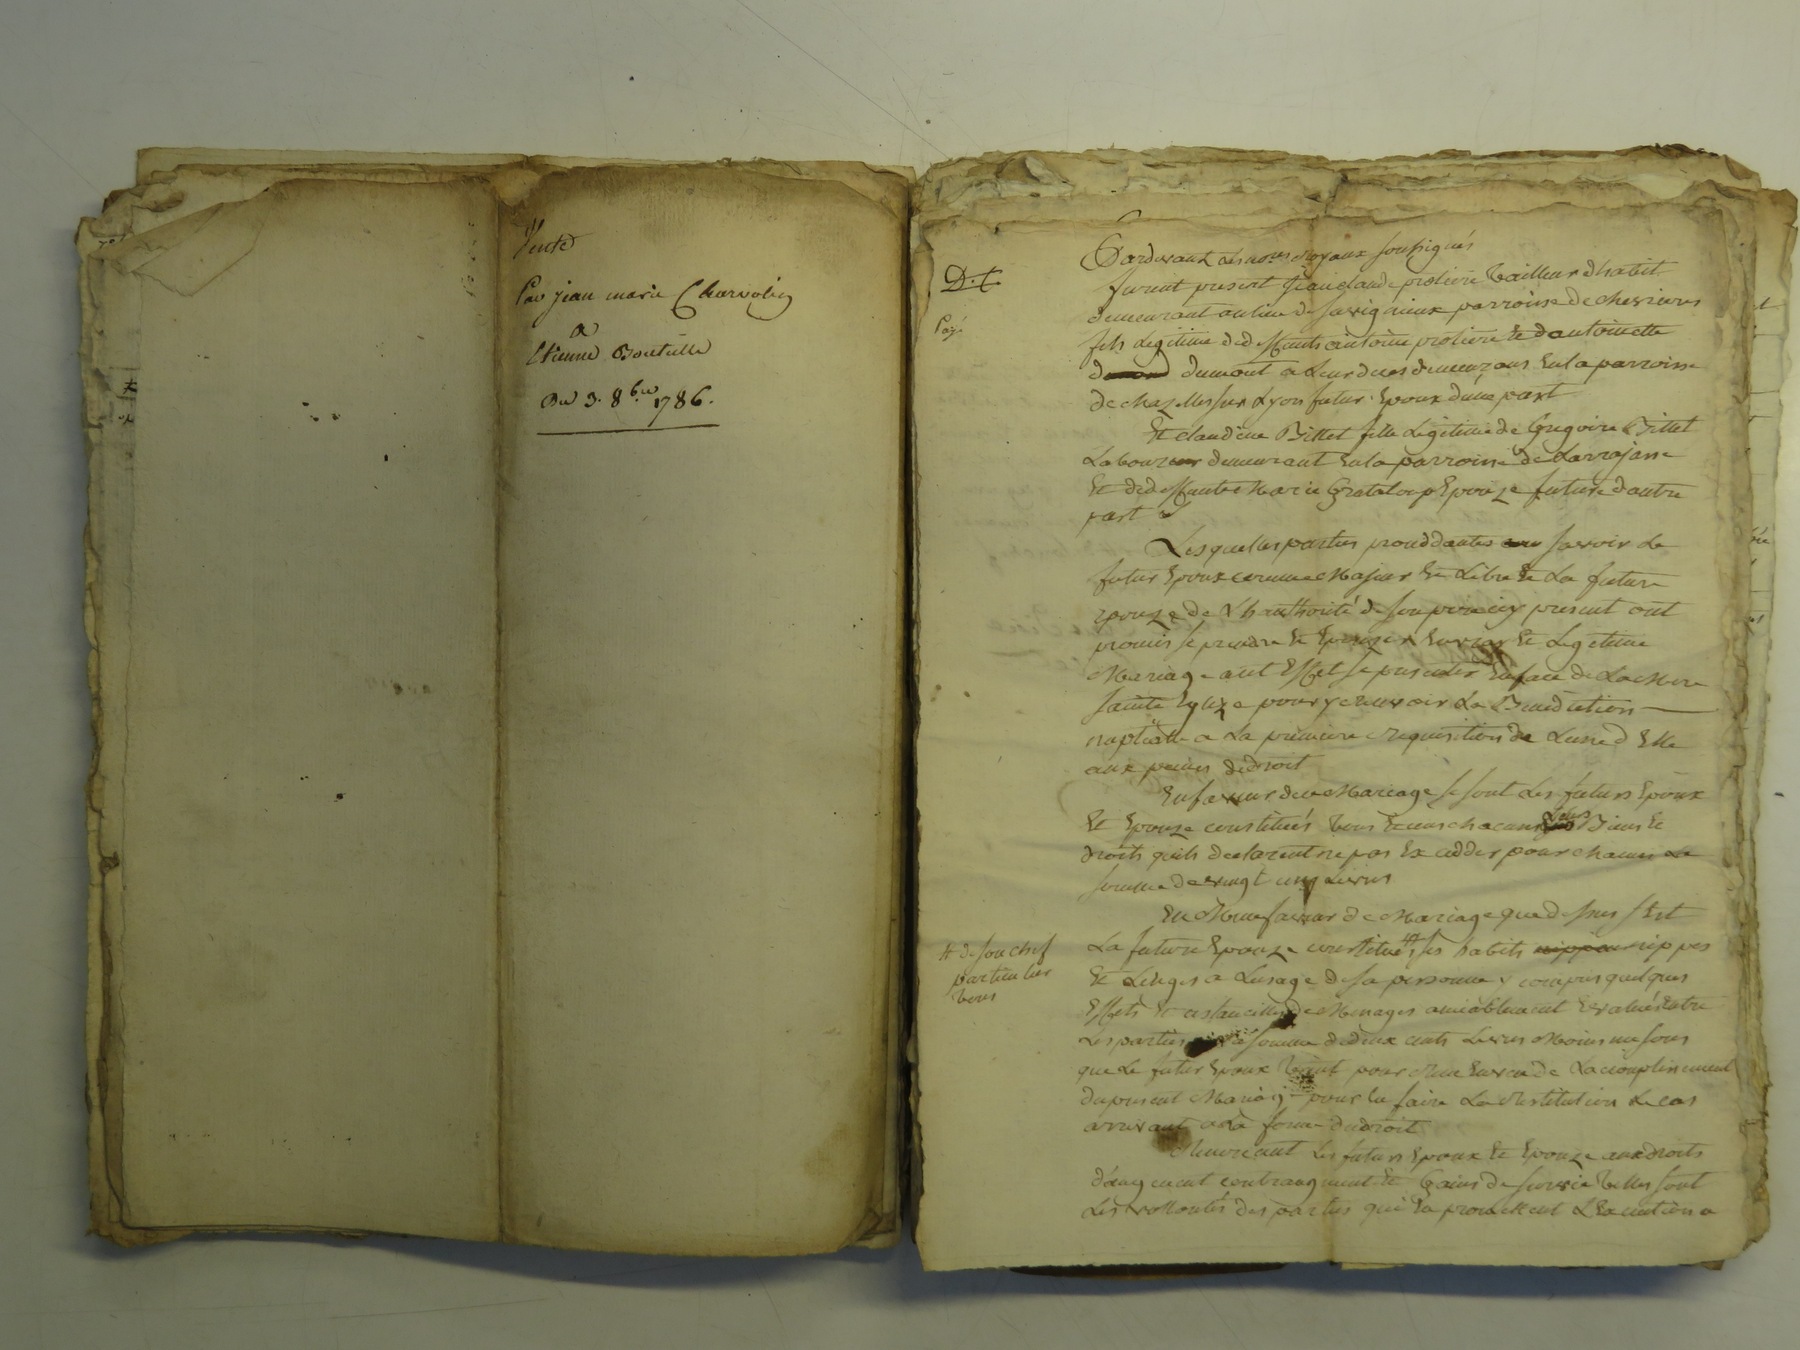 Vente
Par jean marie Charvolin
a
Etienne Bouteille
Du 3. 8bre 1786.
D. C.
Payé
Pardevant les no.res royaux soussignés
furent present Jean claude proliere tailleur d'habit
demeurant au lieu de savignieux parroisse de chevrieres
fils legitime de deffunts antoine proliere et d antoinette
dumont a leur deces demeurans en la parroisse
de chazelles sur Lyon futur Epoux d'une part
Et claudine Bittet fille Legitime de Gregoire Bittet
Laboureur demeurant en la parroisse de Larrajasse
Et de deffunte Marie Grataloup Epouze future d'autre
part
Lesquelles parties proceddantes savoir Le
futur Epoux comme Majeur Et Libre Et La future
epouze de L'hauthorité de son pere icy present ont
promis se prendre Et Epouzer en vray Et Legitime
Mariage a cet Effet se presenter En face de La Mere
sainte Eglize pour y recevoir La Benediction
nuptialle a La premiere requisition de L'une d'Elle
aux peines de droit
En faveur de ce Mariage se sont Les futurs Epoux
Et Epouze constitués tous et uns chacuns leurs Biens Et
droits qu'ils declarent ne pas Excedder pour chacun La
somme de vingt cinq Livres
En Meme faveur de Mariage que dessus s'Est
La future Epouze constitués # ses habits nippes
# de son chef
particulier
Et Linges a Lusage de sa personne y compris quelques
Effets Et ustancilles de Menages amiablement Evalués Entre
Les parties a la somme de deux cents Livres Moins un sous
que Le futur Epoux pour En vertu de L'accomplissement
du present Mariage pour En faire La restitution Le cas
arrivant a la forme du droit
Renoncent Les futurs Epoux Et Epouze aux droits
d'augment contraugment Et Gains de survie telles sont
Les vollontés des parties qui En promettent L'Execution a